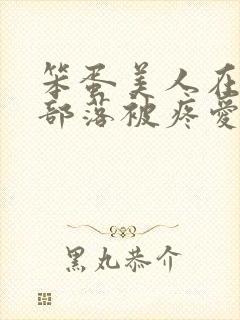 笨蛋美人在
部落被疼愛
黑丸恭介